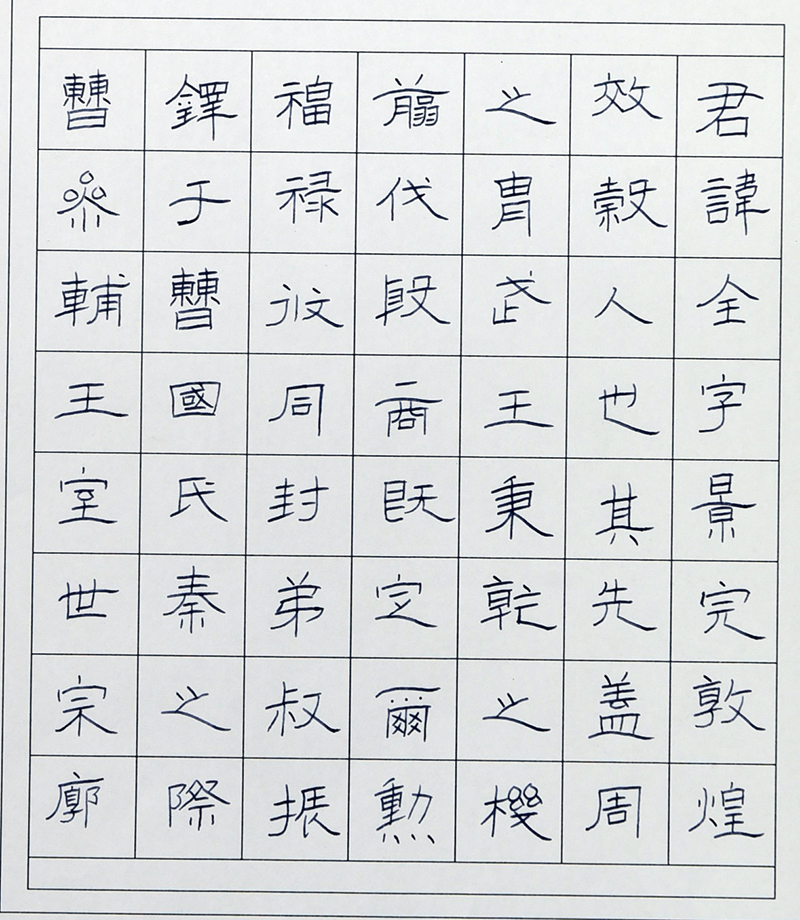 君諱全字景完敦煌
效穀人也其先盖周
之胄武王秉乾之機
翦伐殷商既定爾勲
福禄攸同封弟叔振
鐸于曹國氏秦之際
曹參輔王室世宗廓